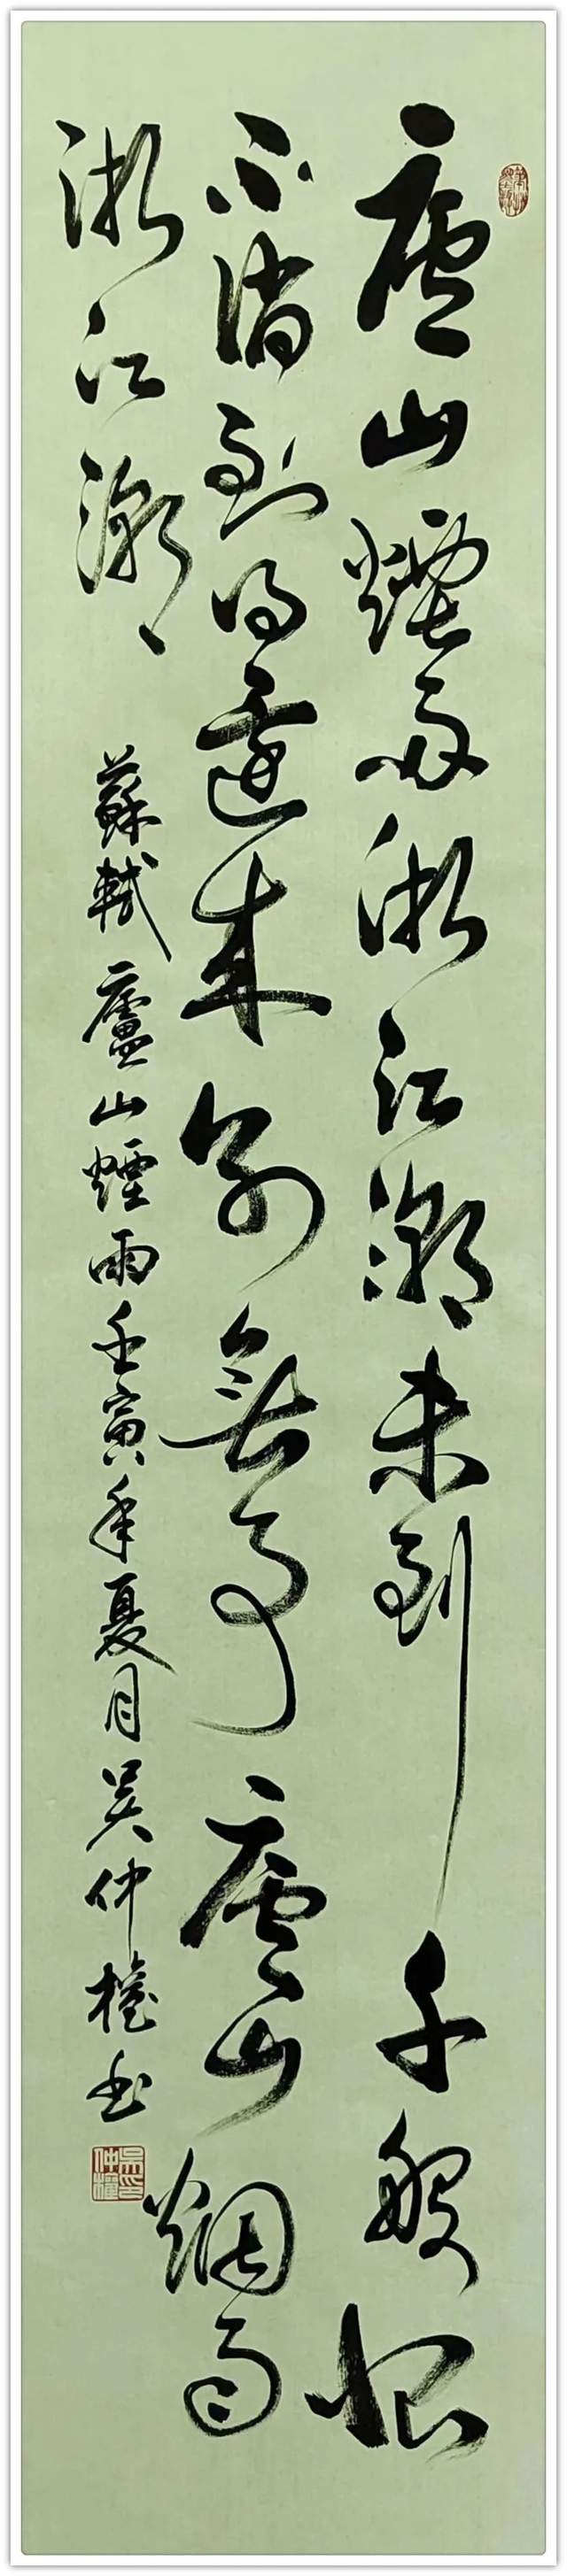 廬山煙雨浙江潮未到千般恨
不消到得還來別無事廬山烟雨
浙江潮
蘇軾廬山煙雨壬寅年夏月吴仲權書
吴印仲權